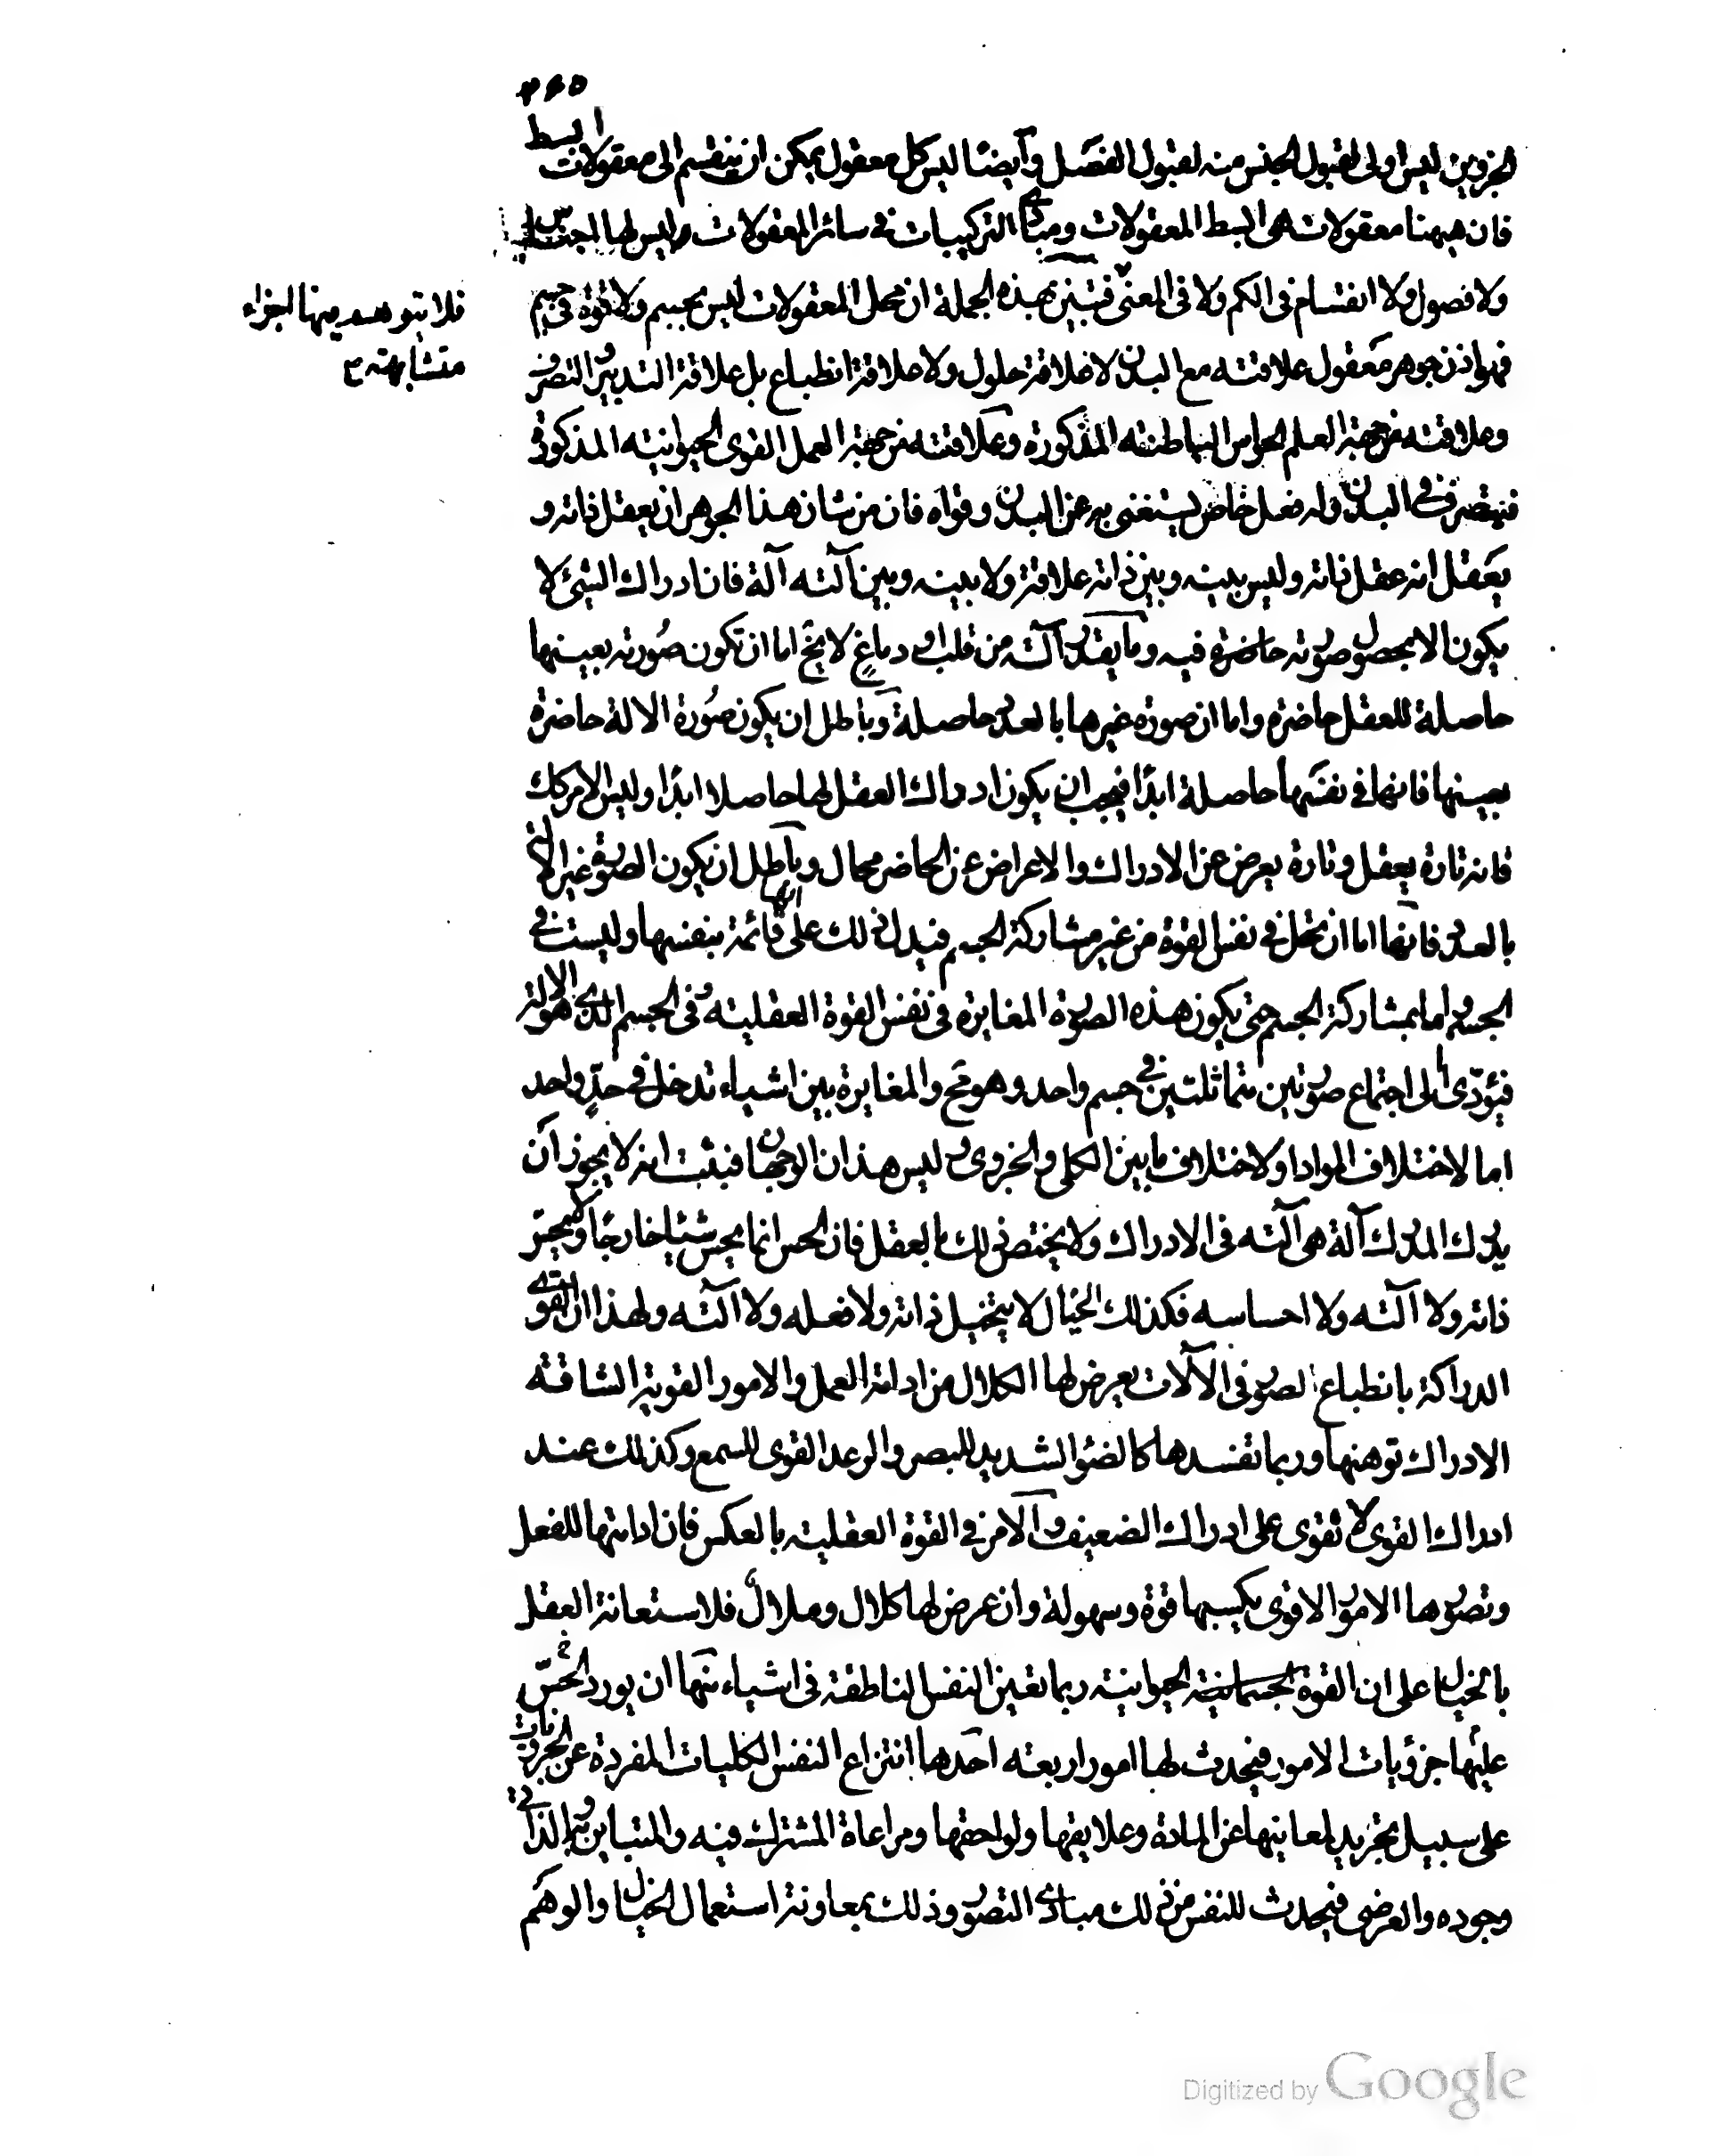 ٣٤٥
الجزوين ليس اولى لقبول الجنس منه لقبول الفصل وايضا ليس كل معقول يمكن ان ينقسم الى معقولات ابسط
فان ههنا معقولات هى ابسط المعقولات ومبادى التركيبات فى سائر المعقولات وليس لها اجناس
ولا فصول ولا انقسام فى الكم ولا فى المعنى فتبين بهذه الجملة ان محل المعقولات ليس بجسم ولا قوة فى جسم
فلا يتوهم فيها اجزاء
متشابهة
فهو اذن جوهر معقول علاقته مع البدن لا علاقة حلول ولا علاقة انطباع بل علاقة التدبير والتصرف
وعلاقته من جهة العلم الحواس الباطنه المذكورة وعلاقته من جهة العمل القوى الحيوانيه المذكورة
فيتصرف فى البدن وله فعل خاص يستغنى به عن البدن وقواه فان من شان هذا الجوهر ان يعقل ذاته و
يعقل انه عقل ذاته وليس بينه وبين ذاته علاقة ولا بينه وبين آلته آلة فان ادراك الشئ لا
يكون الا بحصول صورته حاضرة فيه وما يقدر آلته من قلب او دماغ لا يخ اما ان تكون صورته بعينها
حاصلة للعقل حاضرة واما ان صورة غيرها بالعدد حاصلة وباطل ان يكون صورة الالة حاضرة
بعينها فانها فى نفسها حاصلة ابدا فيجب ان يكون ادراك العقل لها حاصلا ابدا وليس الامر كك
فانه تارة يعقل وتارة يعرض عن الادراك والاعراض عن الحاضر محال وباطل ان يكون الصورة غير الالة
بالعدد فانها اما ان تحل فى نفس القوة من غير مشاركة الجسم فيدل ذلك على انها قائمة بنفسها وليست فى
الجسم واما بمشاركة الجسم حتى يكون هذه الصورة المغايرة فى نفس القوة العقليته وفى الجسم الذى هو الالة
فيؤدى الى اجتماع صورتين متماثلتين فى جسم واحد وهو مح والمغايرة بين اشياء تدخل فى حد واحد
اما لاختلاف المواد او لاختلاف ما بين الكلى والجزوى وليس هذان الوجهان فثبت انه لا يجوز ان
يدرك المدرك آلة هى آلته فى الادراك ولا يختص ذلك بالعقل فان الحس انما يحس شيئا خارجا ولا يحس
ذاته ولا آلته ولا احساسه فكذلك الخيال لا يتخيل ذاته ولا فعله ولا آلته ولهذا ان القوى
الدراكة بانطباع الصور فى الآلات يعرض لها الكلال من ادامة العمل والامور القوية الشاقة
الادراك توهنها وربما تفسدها كالضؤ الشديد للبصر والرعد القوى للسمع وكذلك عند
ادراك القوى لا تقوى على ادراك الضعيف والامر فى القوة العقليته بالعكس فان ادامتها للفعل
وتصورها الامور الاقوى يكسبها قوة وسهولة وان عرض لها كلال وملال فلاستعانة العقل
بالخيال على ان القوة الحيوانية ربما تعين النفس الناطقة فى اشياء منها ان يورد الحس
عليها جزؤيات الامور فيحدث لها امور اربعته احدها انتزاع النفس الكليات المفردة عن الجزويات
على سبيل تجريد لمعانيها عن المادة وعلايقها ولواحقها ومراعاة المشترك فيه والمتباين به والذاتى
وجوده والعرضى فيحدث للنفس من ذلك مبادى التصور وذلك بمعاونة استعمال الخيال والوهم
Digitized by Google